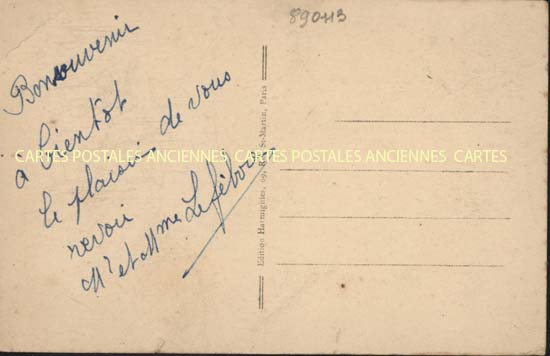 890413
Bon souvenir
à bientôt
le plaisir de vous
revoir
Mr et Mme Lefébvre
Edition Harmignies, 99, Rue St-Martin, Paris
CARTES POSTALES ANCIENNES CARTES POSTALES ANCIENNES CARTES